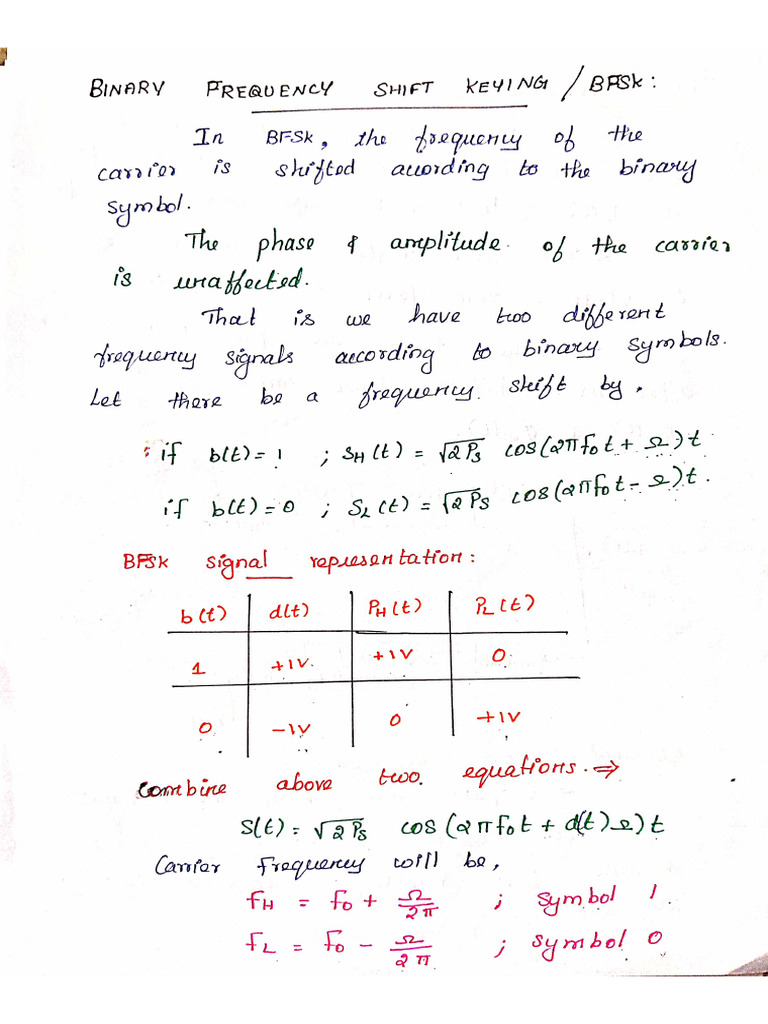 BINARY FREQUENCY SHIFT KEYING / BFSK :
In BFSK, the frequency of the
carrier is shifted according to the binary
symbol.
The phase & amplitude of the carrier
is unaffected.
That is we have two different
frequency signals according to binary symbols.
Let there be a frequency shift by,
if b(t) = 1 ; SH(t) = √2Ps cos(2πf0t + Ω)t
if b(t) = 0 ; SL(t) = √2Ps cos(2πf0t - Ω)t.
BFSK signal representation:
b(t) d(t) PH(t) PL(t)
1 +1V +1V 0
0 -1V 0 +1V
Combine above two equations. ⇒
S(t) = √2Ps cos(2πf0t + d(t)Ω)t
Carrier frequency will be,
fH = f0 + Ω/2π ; symbol 1
fL = f0 - Ω/2π ; symbol 0